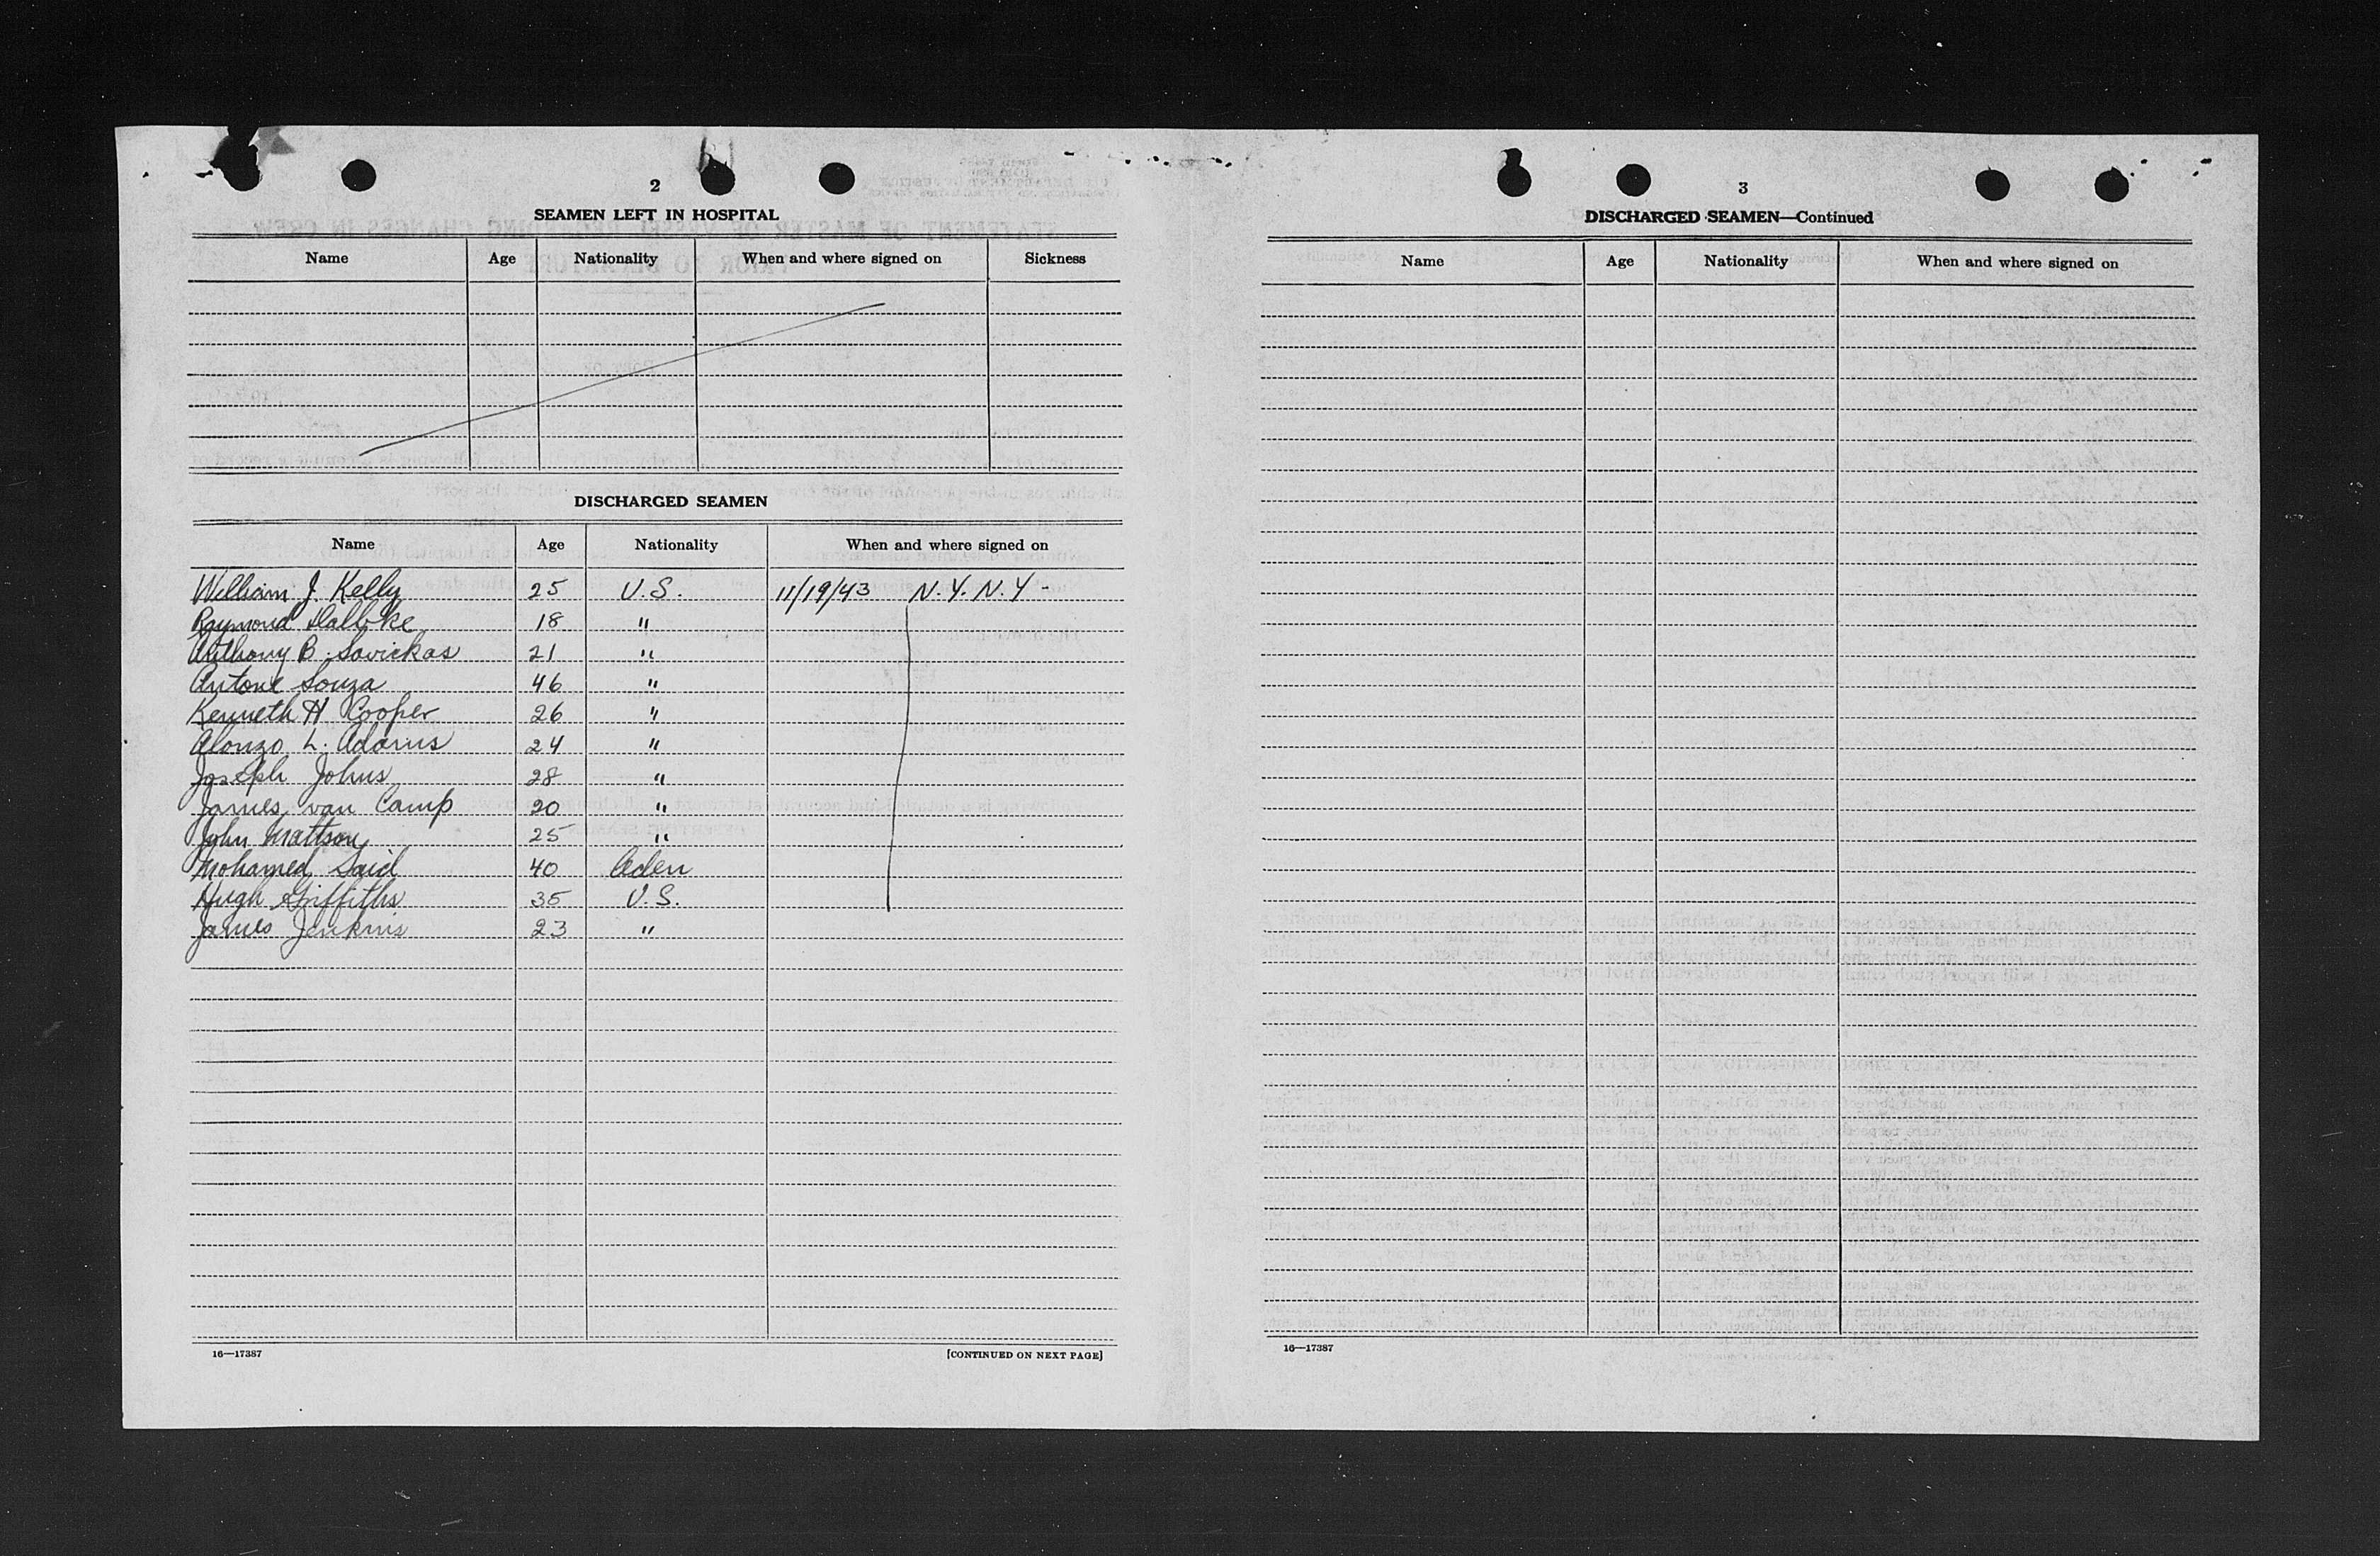 2
SEAMEN LEFT IN HOSPITAL
Name Age Nationality When and where signed on Sickness
DISCHARGED SEAMEN
Name Age Nationality When and where signed on
William J. Kelly 25 U.S. 11/19/43 N.Y. N.Y -
Raymond 18 "
Anthony B. Savickas 21 "
Antone Souza 46 "
Kenneth H Cooper 26 "
Alonzo L. Adams 24 "
Joseph Johns 28 "
James van Camp 20 "
John Mattson 25 "
Mohamed Said 40 Aden
Hugh Griffiths 35 U.S.
James Jenkins 23 "
16—17387 [CONTINUED ON NEXT PAGE]
3
DISCHARGED SEAMEN—Continued
Name Age Nationality When and where signed on
16—17387